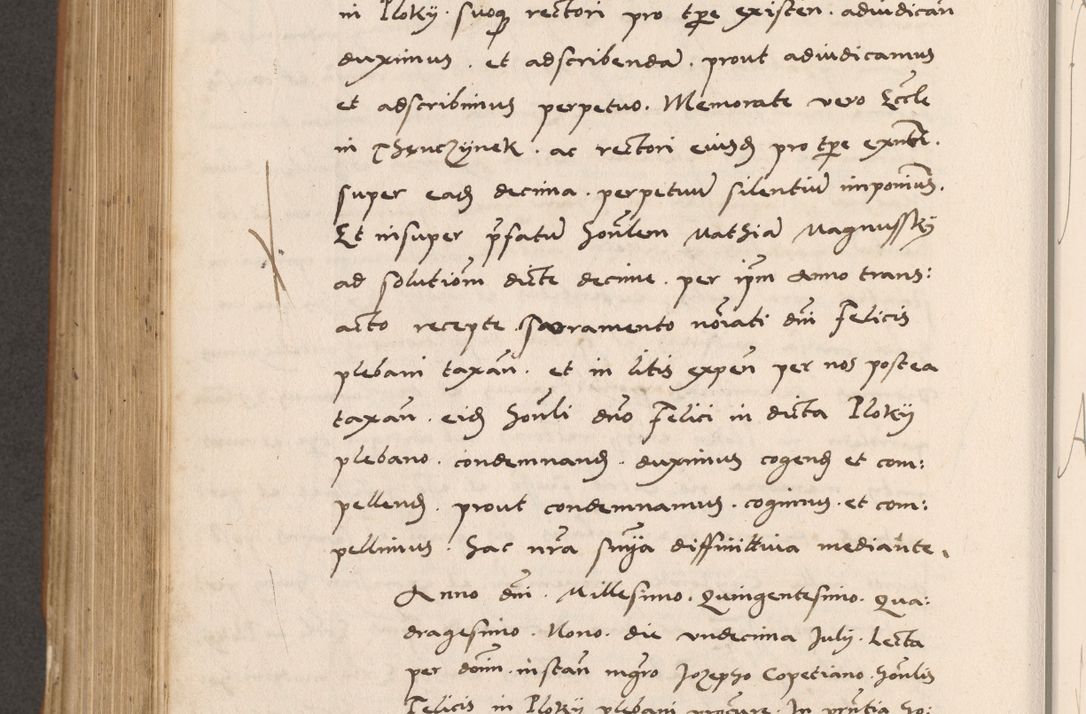 in Ploky suoq rectori pro tpe existen. adiudican
duximus. et adscribenda. prout adiudicamus
et adscribimus perpetuo. Memorate vero Eccle
in ac rectori eiusd pro tpe exnte.
super ead decima. perpetuu silentiu imponimus.
Et insuper pfatu honlem Mathia Magnussky
ad solutiom dicte decime. per ipm Anno trans:
acto recepte. Sacramento noiati dni Felicis
plebani taxan. et in litis expen per nos postea
taxan. eid honli dno Felici in dicta Ploky
plebano. condemnand. duximus cogend et com:
pellend. prout condemnamus. cogimus. et com:
pellimus. hac nra snia diffinitiva mediante.
Anno dni. Millesimo. Quingentesimo. Qua:
dragesimo. Nono. die vndecima Julij. Lecta
per dnm. instan mgro Jozepho Copetiano. honlis
Felicis in Ploky plebani procure. In pntia ho: